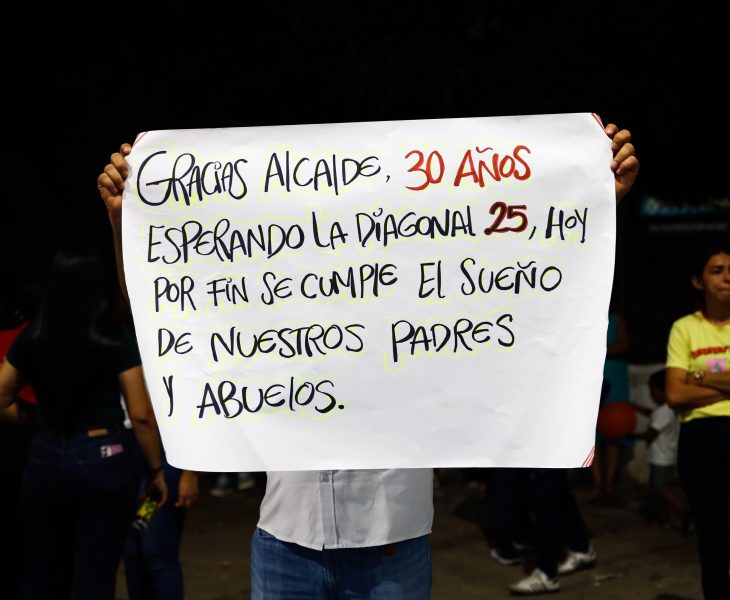 GRACIAS AlCAlDE, 30 AÑOS
ESPERANDO LA DIAGONAL 25, HOY
POR FIN SE CUMPlE El SUEÑO
DE NUESTROS PADRES
Y ABUElOS.